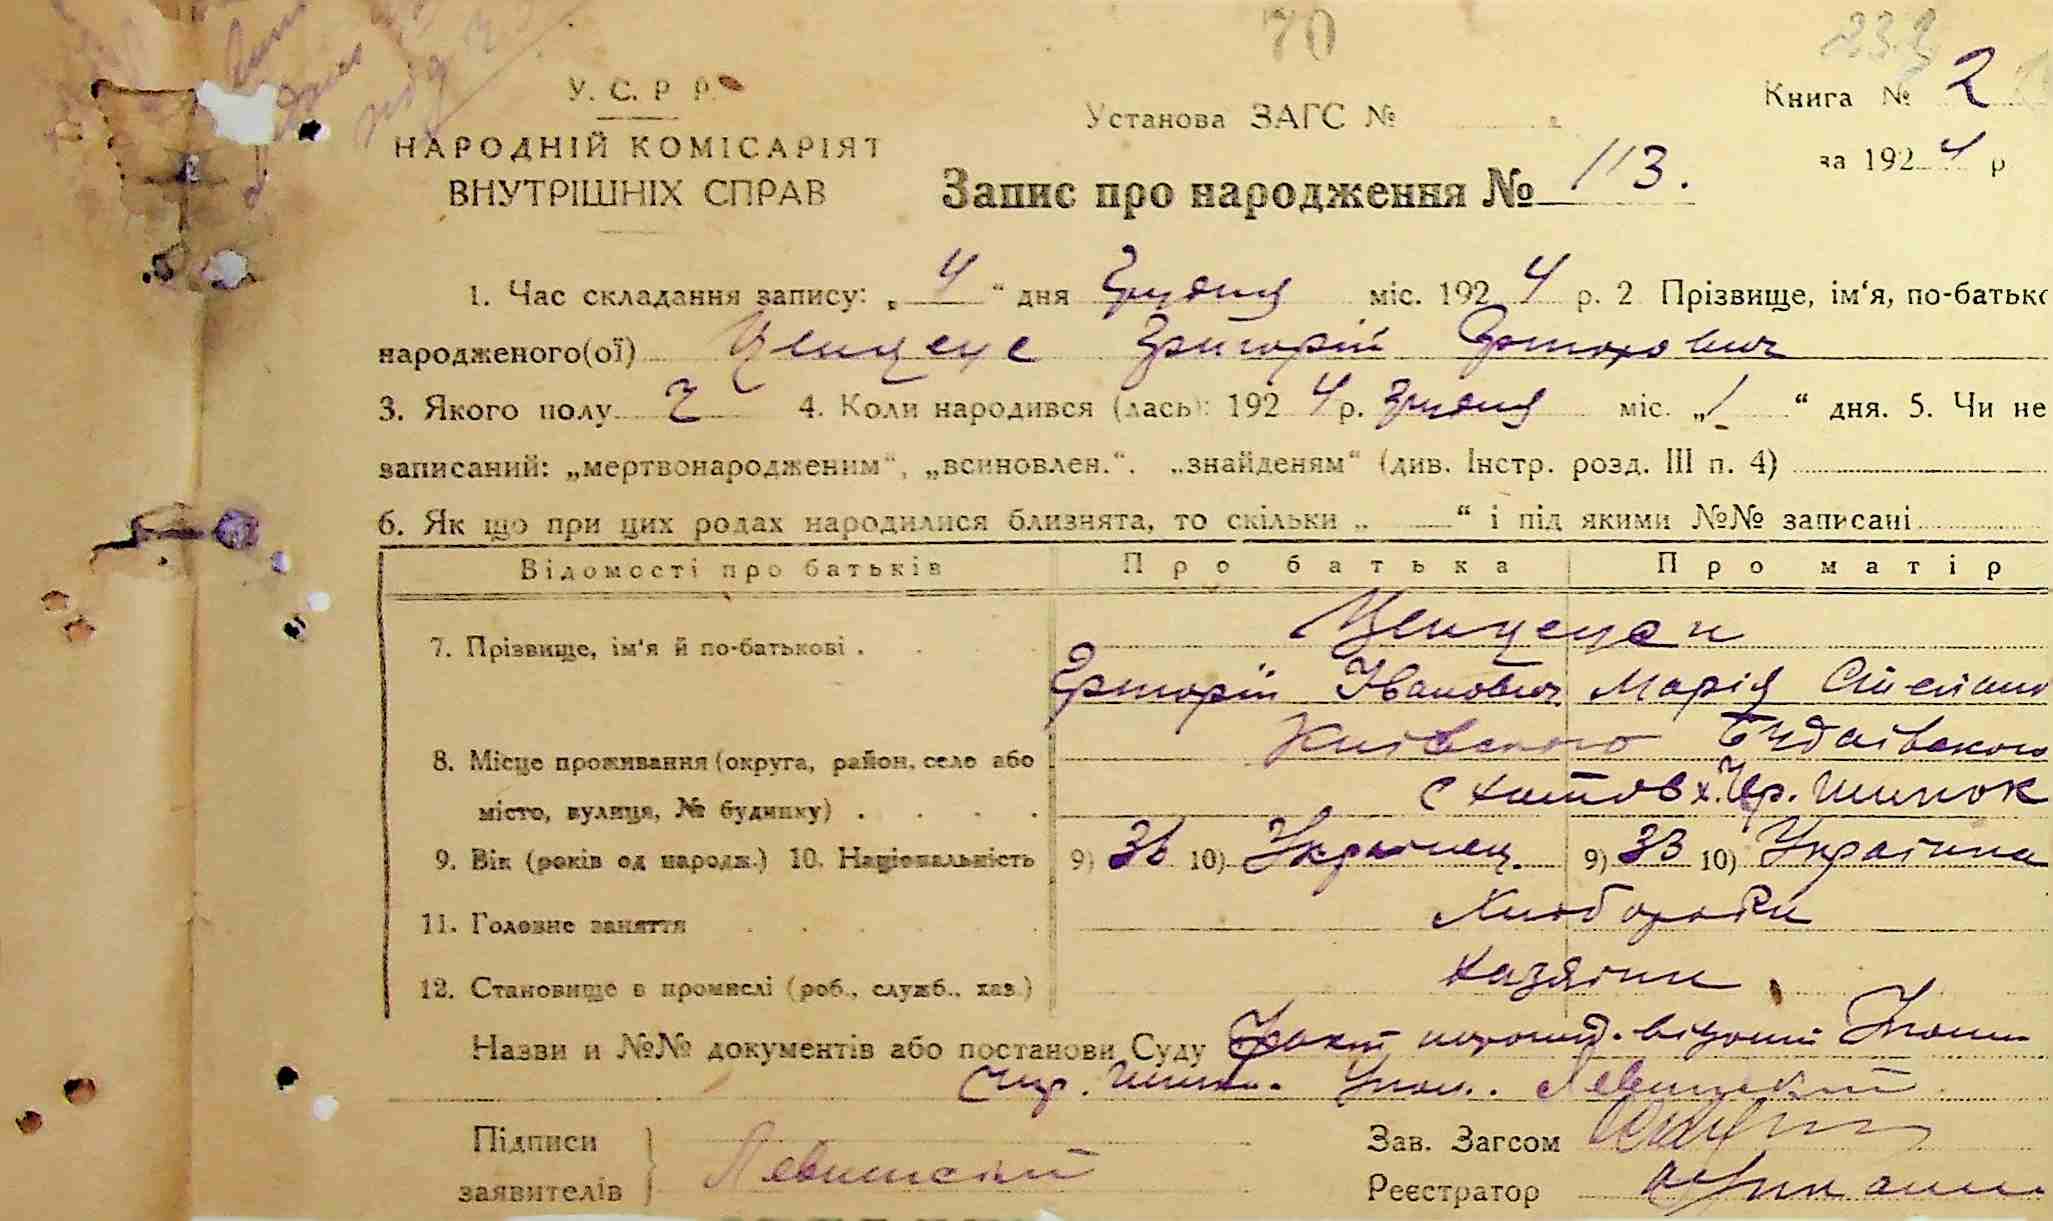 70
У. С. Р Р.
НАРОДНІЙ КОМІСАРІЯТ
ВНУТРІШНІХ СПРАВ
Установа ЗАГС №
Книга № 2
за 1924 р
Запис про народження № 113.
1. Час складання запису: „4“ дня Грудня міс. 1924 р. 2 Прізвище, ім‘я, по-батько
народженого(ої) Григорій Григорович
3. Якого полу Ч 4. Коли народився (лась): 1924 р. Грудня міс. „1“ дня. 5. Чи не
записаний: „мертвонародженим“, „всиновлен.“. „знайденям“ (див. Інстр. розд. III п. 4)
6. Як що при цих родах народилися близнята, то скільки „ “ і під якими №№ записані
Відомості про батьків Про батька Про матір
7. Прізвище, ім‘я й по-батькові .
Григорій Іванович Марія Степано
8. Місце проживання (округа, район, село або Київського Будаївського
місто, вулиця, № будинку) . . . . с х. Кр. Шинок
9. Вік (років од народж.) 10. Національність 9) 36 10) Українец. 9) 33 10) Українка
11. Головне заняття Хлібороби
12. Становище в промислі (роб., служб., хаз.) хазяїни
Назви и №№ документів або постанови Суду Факт
Левицький
Підписи
заявителів Левицький
Зав. Загсом
Реєстратор